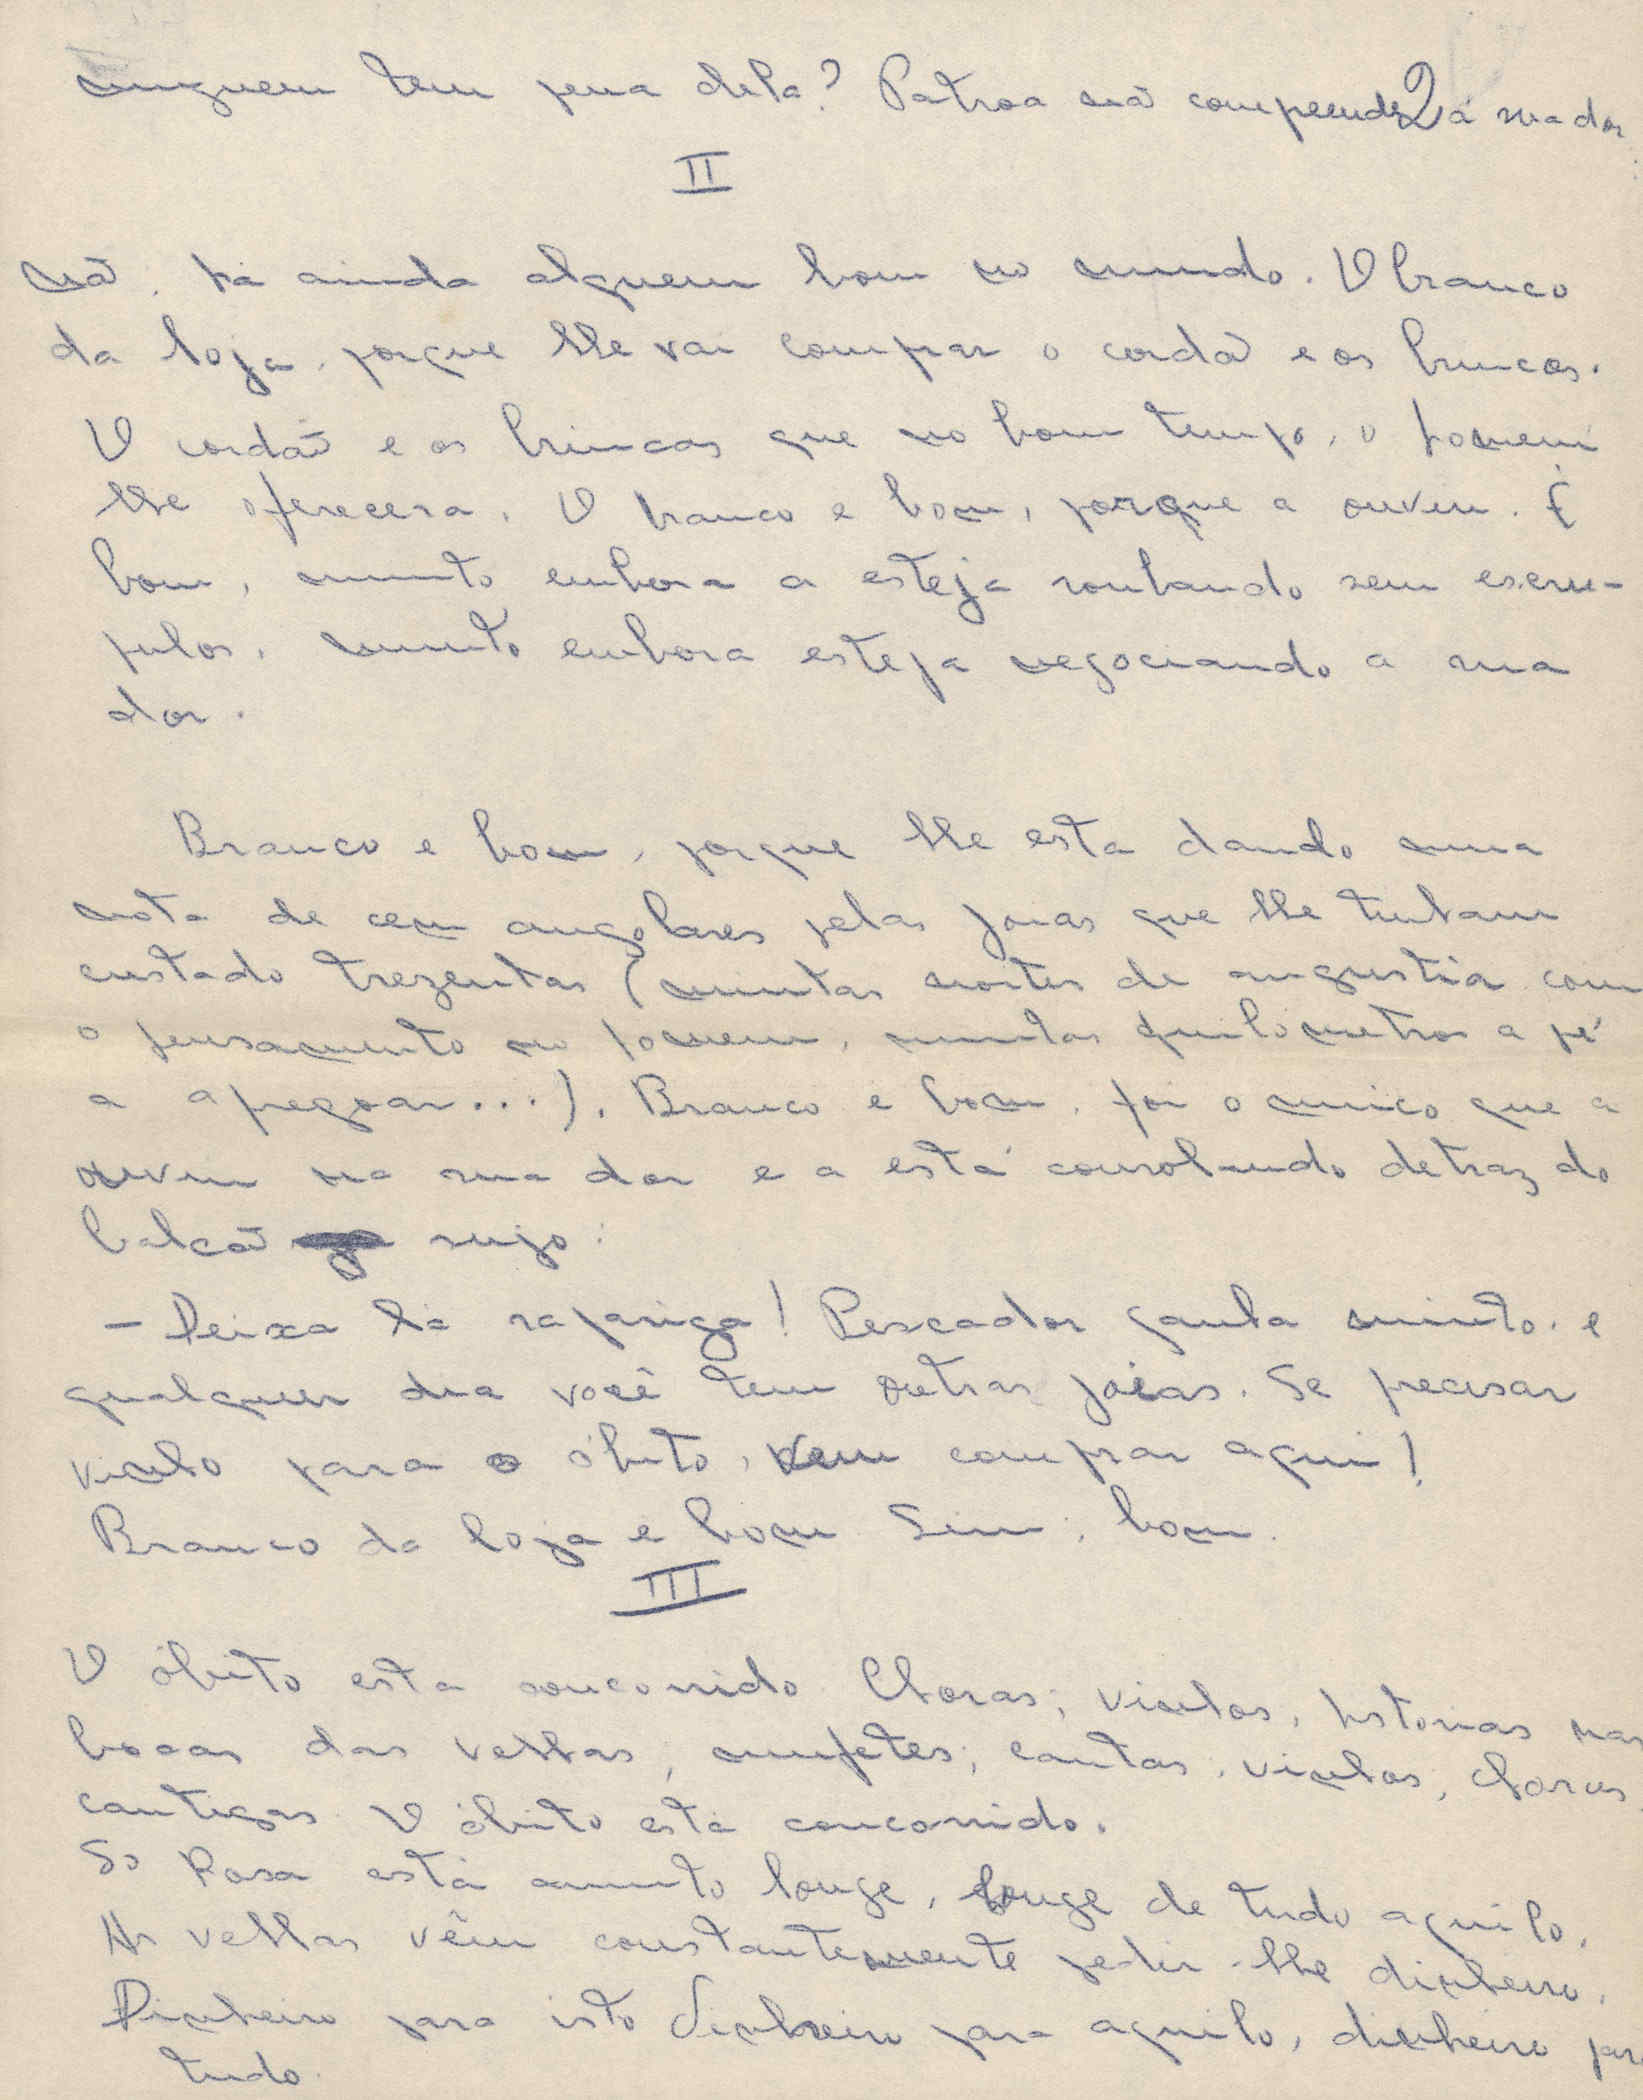 ninguem tem pena dela? Patroa não compreende a sua dor
2
II
Não, há ainda alguem bom no mundo. O branco
da loja, porque lhe vai comprar o cordão e os brincos.
O cordão e os brincos que no bom tempo, o homem
lhe oferecera. O branco é bom, porque a ouviu. É
bom, muito embora a esteja roubando sem escru-
pulos, muito embora esteja negociando a sua
dor.
Branco é bom, porque lhe esta dando uma
nota de cem angolares pelas joias que lhe tinham
custado trezentas (muitas noites de angustia com
o pensamento no homem, muitos quilometros a pé
a apregoar...). Branco é bom, foi o unico que a
ouviu na sua dor e a está consolando detraz do
balcão sujo:
- Deixa lá rapariga! Pescador ganha muito, e
qualquer dia você tem outras joias. Se precisar
vinho para o óbito, vem comprar aqui!
Branco da loja é bom. Sim, bom.
III
O óbito está concorrido. Choros, vinhos, histórias nas
bocas das velhas, mufetes, cantos, vinhos, choros,
cantigas. O óbito está concorrido.
Só Rosa está muito longe, longe de tudo aquilo.
As velhas vêm constantemente pedir-lhe dinheiro.
Dinheiro para isto dinheiro para aquilo, dinheiro para
tudo.